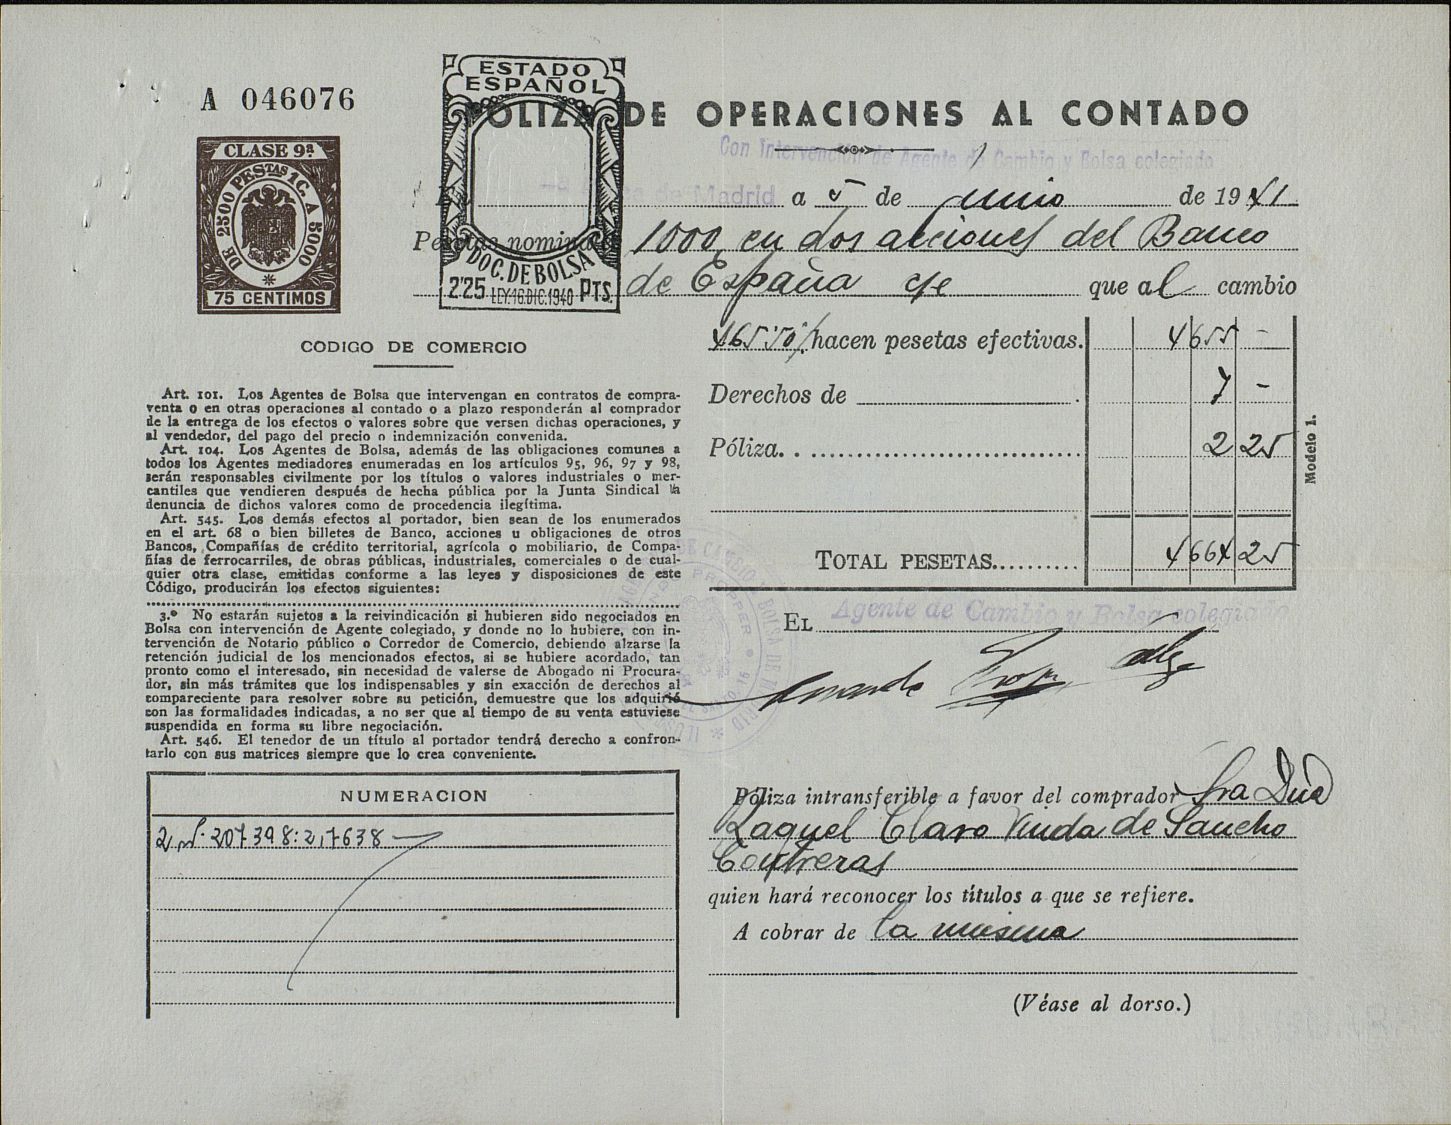 A 046076
ESTADO
ESPAÑOL
POLIZA DE OPERACIONES AL CONTADO
Con Intervención de Agente de Cambio y Bolsa colegiado
CLASE 9ª
DE 2500 PESTAS 1 C. A 5000
75 CENTIMOS
DOC. DE BOLSA
2'25 LEY.16.DIC.1940 PTS.
En la Bolsa de Madrid a 5 de junio de 1941
Pesetas nominales 1000 en dos acciones del Banco
de España c/e que al cambio
465'50% hacen pesetas efectivas. 4655 -
Derechos de . 7 -
Póliza. 2 25
TOTAL PESETAS 4664 25
Modelo 1.
CODIGO DE COMERCIO
Art. 101. Los Agentes de Bolsa que intervengan en contratos de compra-
venta o en otras operaciones al contado o a plazo responderán al comprador
de la entrega de los efectos o valores sobre que versen dichas operaciones, y
al vendedor, del pago del precio o indemnización convenida.
Art. 104. Los Agentes de Bolsa, además de las obligaciones comunes a
todos los Agentes mediadores enumeradas en los artículos 95, 96, 97 y 98,
serán responsables civilmente por los títulos o valores industriales o mer-
cantiles que vendieren después de hecha pública por la Junta Sindical la
denuncia de dichos valores como de procedencia ilegítima.
Art. 545. Los demás efectos al portador, bien sean de los enumerados
en el art. 68 o bien billetes de Banco, acciones u obligaciones de otros
Bancos, Compañías de crédito territorial, agrícola o mobiliario, de Compa-
ñías de ferrocarriles, de obras públicas, industriales, comerciales o de cual-
quier otra clase, emitidas conforme a las leyes y disposiciones de este
Código, producirán los efectos siguientes:
3.º No estarán sujetos a la reivindicación si hubieren sido negociados en
Bolsa con intervención de Agente colegiado, y donde no lo hubiere, con in-
tervención de Notario público o Corredor de Comercio, debiendo alzarse la
retención judicial de los mencionados efectos, si se hubiere acordado, tan
pronto como el interesado, sin necesidad de valerse de Abogado ni Procura-
dor, sin más trámites que los indispensables y sin exacción de derechos al
compareciente para resolver sobre su petición, demuestre que los adquirió
con las formalidades indicadas, a no ser que al tiempo de su venta estuviese
suspendida en forma su libre negociación.
Art. 546. El tenedor de un título al portador tendrá derecho a confron-
tarlo con sus matrices siempre que lo crea conveniente.
EL Agente de Cambio y Bolsa colegiado
NUMERACION
207398: 217638
Póliza intransferible a favor del comprador Sra Dña
Raquel Claro Viuda de Sancho
Contreras
quien hará reconocer los títulos a que se refiere.
A cobrar de la misma
(Véase al dorso.)